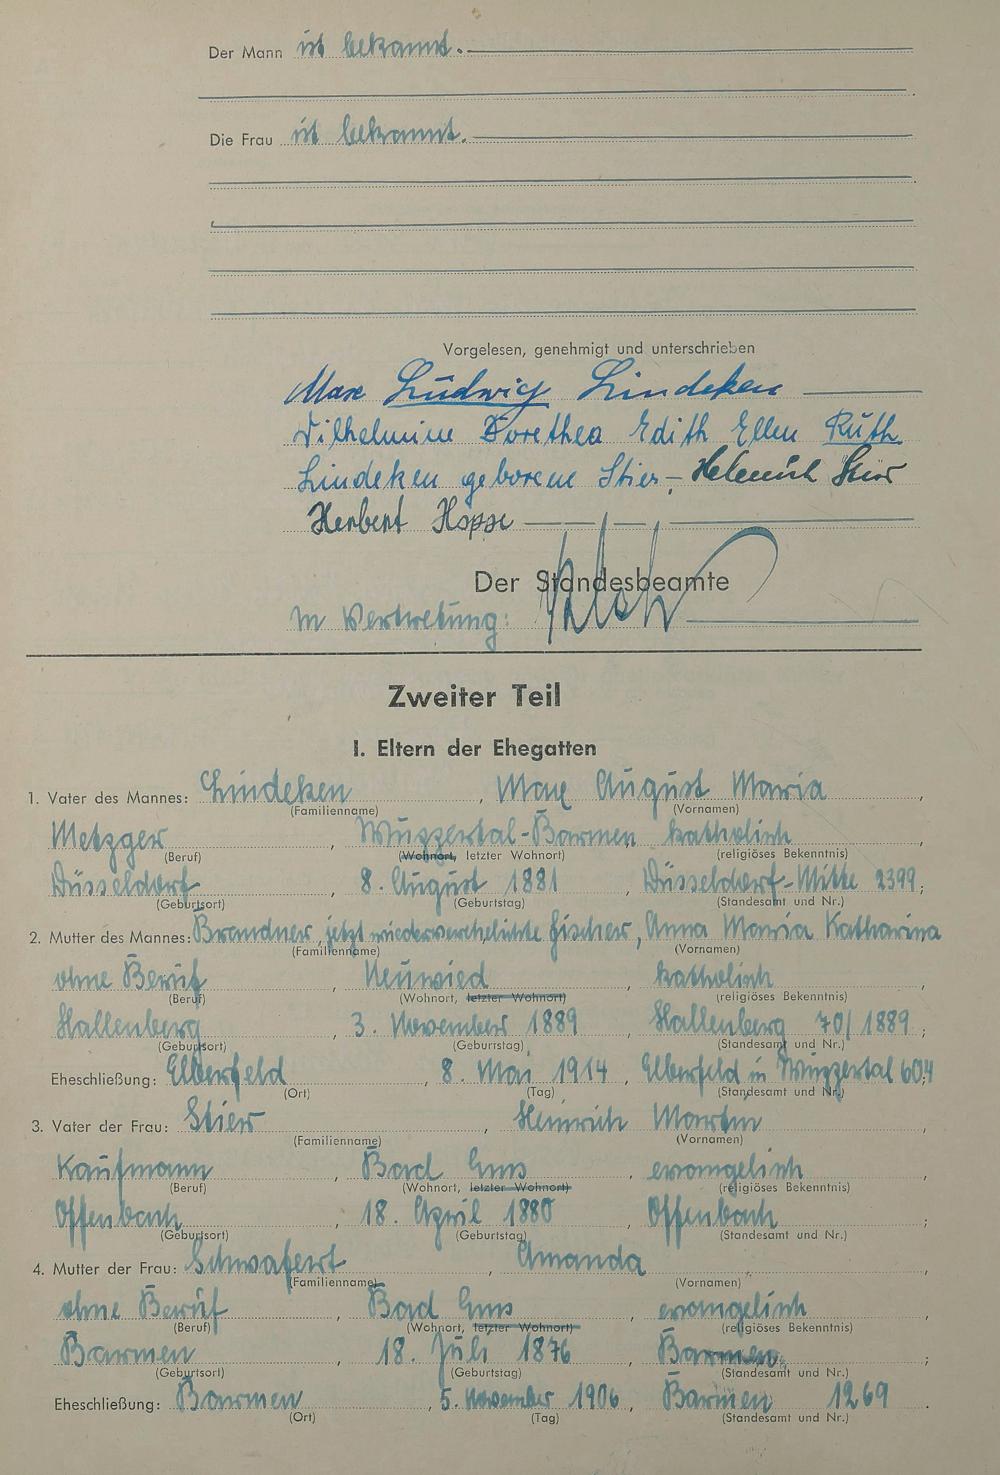 Der Mann ist bekannt.
Die Frau ist bekannt.
Vorgelesen, genehmigt und unterschrieben
Max Ludwig Lindeken
Wilhelmine Dorethea Edith Ellen Ruth
Lindeken geborene Stier, Helmuth Stier
Herbert Hoppe
Der Standesbeamte
In Vertretung:
Zweiter Teil
I. Eltern der Ehegatten
1. Vater des Mannes: Lindeken, Max August Maria,
(Familienname) (Vornamen)
Metzger, Wuppertal-Barmen, katholisch
(Beruf) (Wohnort, letzter Wohnort) (religiöses Bekenntnis)
Düsseldorf, 8. August 1881, Düsseldorf-Mitte 2399;
(Geburtsort) (Geburtstag) (Standesamt und Nr.)
2. Mutter des Mannes: Brandner, jetzt wiederverehelichte Fischer, Anna Maria Katharina
(Familienname) (Vornamen)
ohne Beruf, Neuwied katholisch
(Beruf) (Wohnort, letzter Wohnort) (religiöses Bekenntnis)
Hallenberg, 3. November 1889, Hallenberg 70/1889;
(Geburtsort) (Geburtstag) (Standesamt und Nr.)
Eheschließung: Elberfeld, 8. Mai 1914, Elberfeld in Wuppertal 604;
(Ort) (Tag) (Standesamt und Nr.)
3. Vater der Frau: Stier, Heinrich Martin,
(Familienname) (Vornamen)
Kaufmann, Bad Ems, evangelisch,
(Beruf) (Wohnort, letzter Wohnort) (religiöses Bekenntnis)
Offenbach, 18. April 1880, Offenbach;
(Geburtsort) (Geburtstag) (Standesamt und Nr.)
4. Mutter der Frau: Schwafert, Amanda,
(Familienname) (Vornamen)
ohne Beruf, Bad Ems, evangelisch,
(Beruf) (Wohnort, letzter Wohnort) (religiöses Bekenntnis)
Barmen, 18. Juli 1876, Barmen;
(Geburtsort) (Geburtstag) (Standesamt und Nr.)
Eheschließung: Barmen, 5. November 1906, Barmen 1269.
(Ort) (Tag) (Standesamt und Nr.)